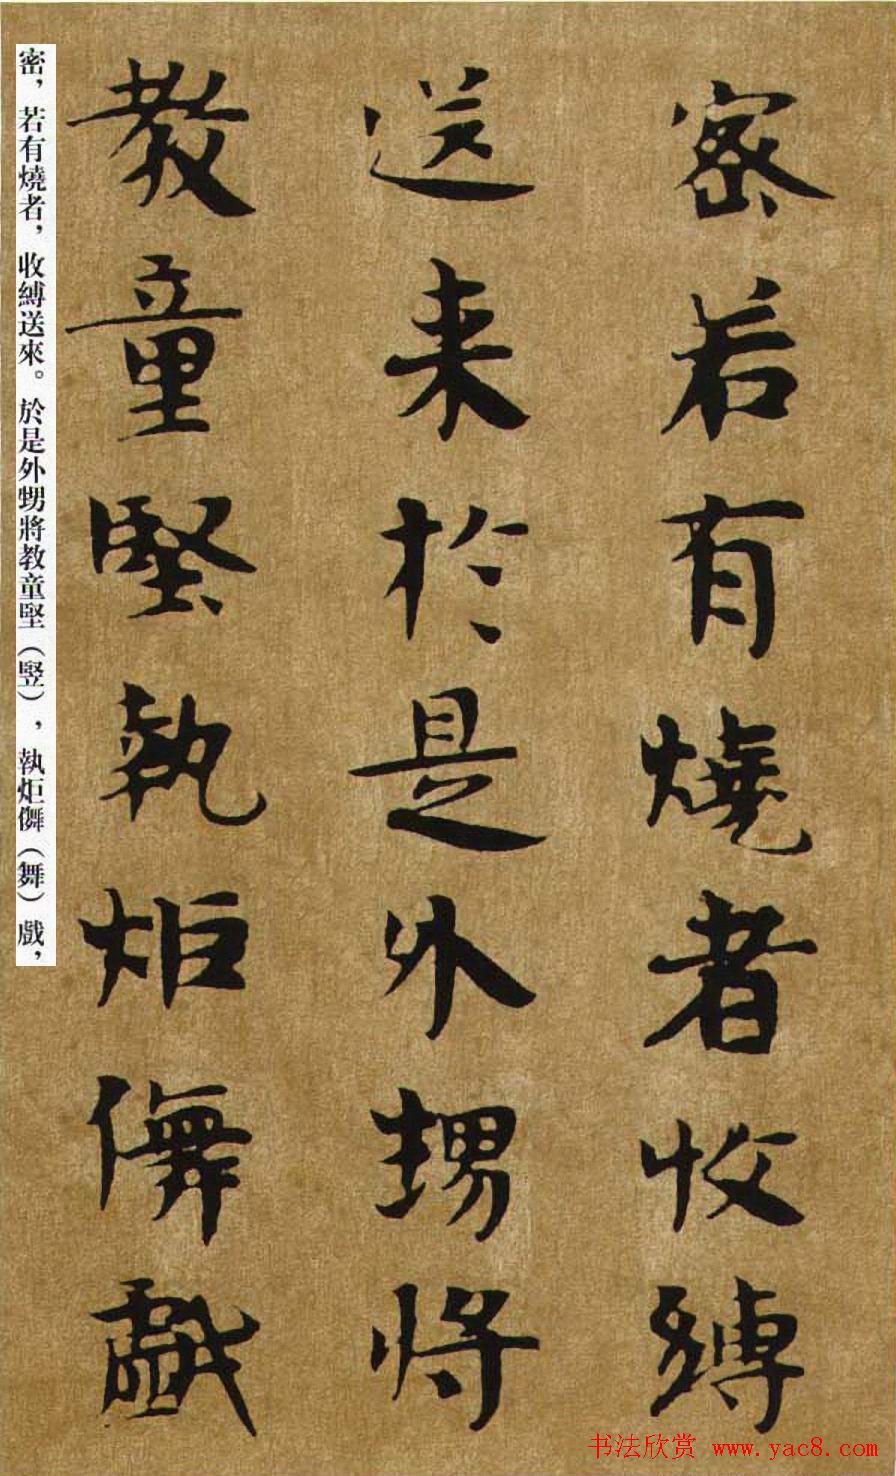 密若有燒者收縛
送来於是外甥將
教童堅執炬儛戲
密，若有燒者，收縛送來。於是外甥將教童堅（竪），執炬儛（舞）戲，
书法欣赏 www.yac8.com